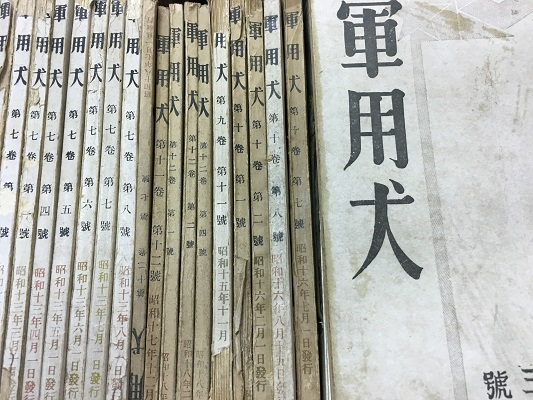 軍用犬
三號
軍用犬 第七卷 第 號 昭和十三年三月
軍用犬 第七卷 第四號 昭和十三年四月一日發行
犬 第七卷 第五號 昭和十三年五月一日發行
用犬 第七卷 第六號 昭和十三年六月一日發行
軍用犬 第七卷 第七號 昭和十三年七月一日發行
軍用犬 第七卷 第八號 昭和十三年八月一日發行
軍用犬 第十一卷 第十二號 昭和十七年十二月
軍用犬 第十二卷 第一號 昭和十八
軍用犬 第十二卷 第二號 昭和十八年二
軍用犬 第十二卷 第四號 昭和十八年
用犬 第九卷 第十一號 昭和十五年十一月
軍用犬 第十卷 第一號
軍用犬 第十卷 第二號 昭和十六年二月一日發行
軍用犬 第十卷 第八號 昭和十六年八月十九日發行
軍用犬 第十卷